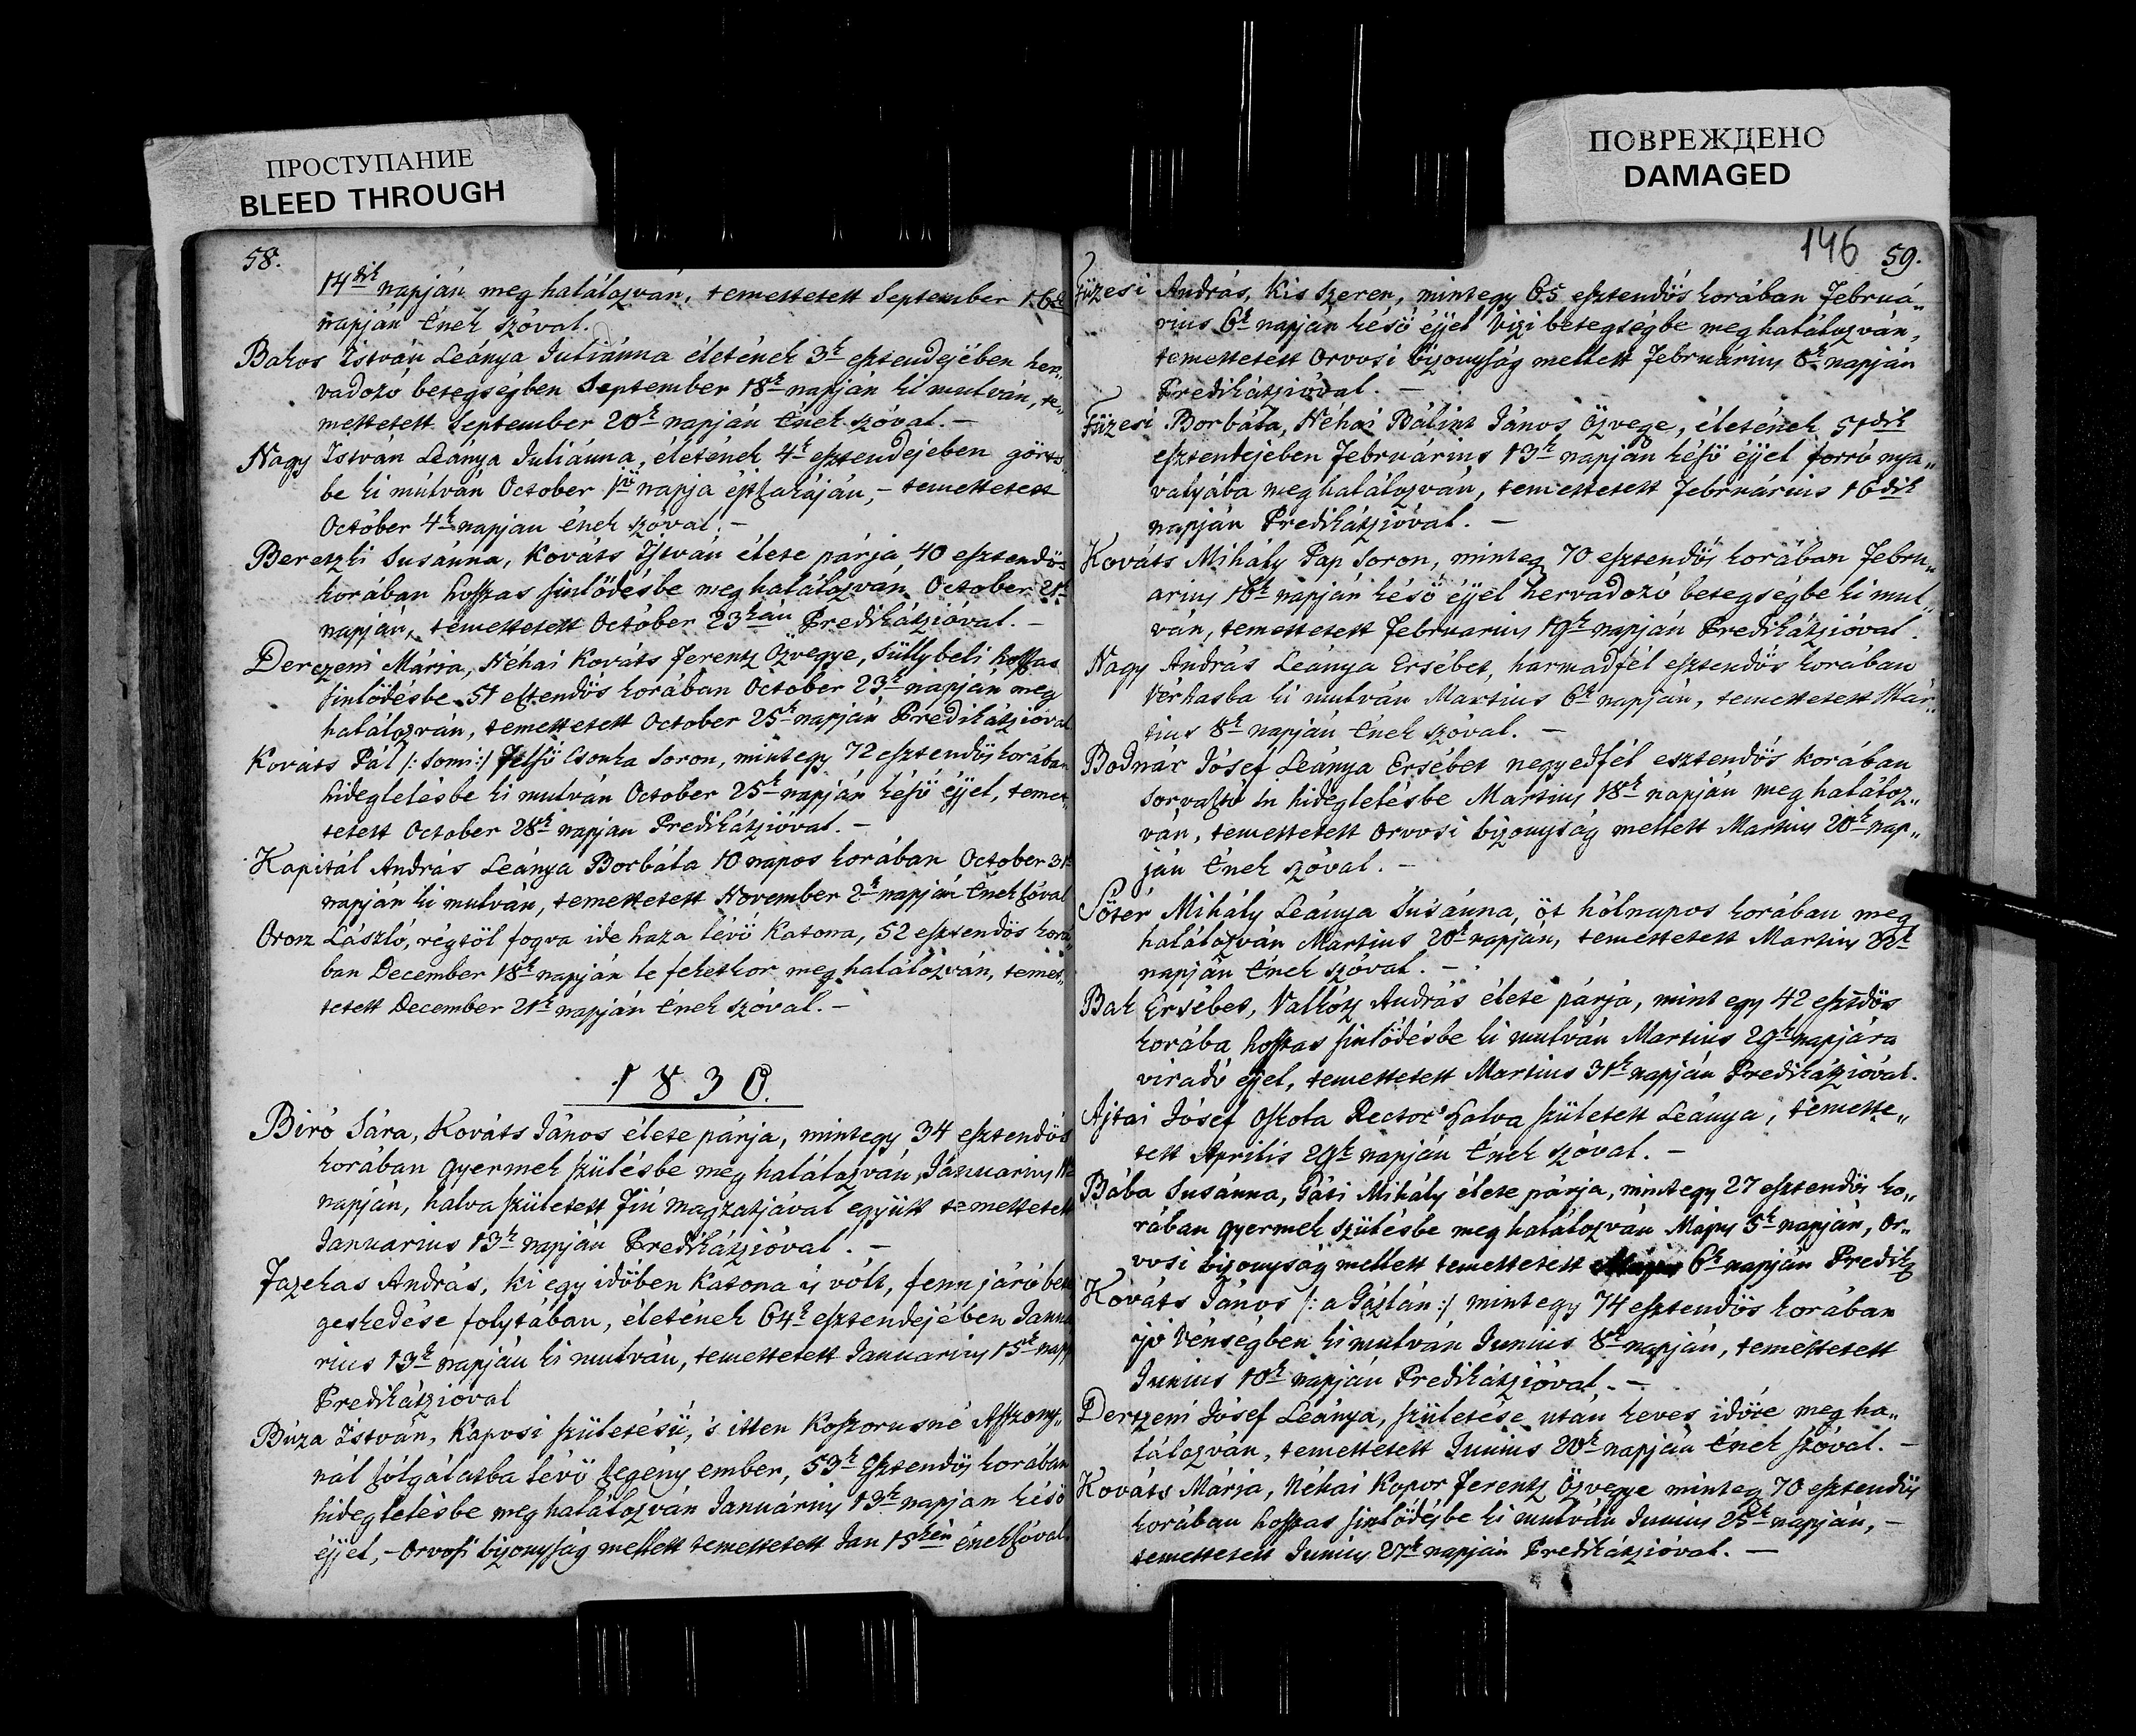 ПРОСТУПАНИЕ
BLEED THROUGH
ПОВРЕЖДЕНО
DAMAGED
58.
14dik napján meg halálozván, temettetett September 16d
napján Ének szóval.
Bakos István Leánya Juliánna életének 3k esztendejében her„
vadozó betegségben September 18k napján ki mulván, te„
mettetett September 20k napján Ének szóval. —
Nagy István Leánya Juliánna, életének 4k esztendejében görts„
be ki múlván October 1ső napja éjtszakáján, – temettetett
Octóber 4k napján ének szóval. —
Beretzki Susánna, Kováts István élete párja 40 esztendős
korában hosszas sinlődésbe meg halálozván October 21k
napján, temettetett Octóber 23kán Predikátzióval. —
Derczeni Mária, Néhai Kováts Ferentz Özvegye, Süllybeli hosszas
sinlődésbe 51 esztendős korában October 23k napján meg
halálozván, temettetett October 25k napján Predikátzióval
Kováts Pál /: Somi :/ Felső Csonka Soron, mintegy 72 esztendős korában
hideglelésbe ki mulván October 25k napján késő éjjel, temet„
tetett October 28k napján Predikátzióval. —
Kapitál András Leánya Borbála 10 napos korában October 31k
napján ki mulván, temettetett November 2k napján Énekszóval
Orosz László, régtöl fogva ide haza lévő Katona, 52 esztendős korá„
ban December 18k napján le fektekor meg halálozván, temet„
tetett December 21k napján Ének szóval. —
1830.
Biró Sára, Kováts János élete párja, mintegy 34 esztendős
korában gyermek szülésbe meg halálozván, Januarius 11k
napján, halva született Fiú magzatjával együtt temettetett
Januarius 13k napján Predikátzióval. —
Fazekas András, ki egy időben Katona is vólt, fennjáró bete
geskedése folytában, életének 64k esztendejében Janua
rius 13k napján ki mulván, temettetett Januarius 15k napj
Predikátzióval
Búza István, Kaposi születésü, 's itten Koszorusné Asszony„
nál szolgálatba lévő szegény ember, 53k Esztendős korában
hideglelésbe meg halálozván Januárius 13k napján késő
éjjel, – Orvosi bizonyság mellett temettetett Jan 15kén énekszóval.
146 59.
Füzesi András, Kis Szeren, mintegy 65 esztendős korában Februá„
rius 6k napján késő éjjel Vizi betegségbe meg halálozván,
temettetett Orvosi bizonyság mellett Februarius 8k napján
Predikátzióval. —
Füzesi Borbála, Néhai Bálint János Özvege, életének 51dik
esztendejében Februárius 13k napján késő éjjel forró nya„
valyába meg halálozván, temettetett Februárius 16dik
napján Predikátzióval. —
Kováts Mihály Pap Soron,minteg 70 esztendős korában Febru„
arius 16k napján késő éjjel hervadozó betegségbe ki mul„
ván, temettetett Februarius 19k napján Predikátzióval.
Nagy András Leánya Ersébet, harmadfél esztendős korában
Vérhasba ki mulván Martius 6k napján, temettetett Már„
tius 8k napján Ének szóval. —
Bodnár Jósef Leánya Ersébet negyedfél esztendős korában
Sorvasztó hideglelésbe Martius 18k napján meg haláloz„
ván, temettetett Orvosi bizonyság mellett Martius 20k nap„
ján Ének szóval. —
Sőtér Mihály Leánya Susánna, öt hólnapos korában meg
halálozván Martius 20k napján, temettetett Martius 22k
napján Ének szóval. —
Bak Ersébet, Valkótz András élete párja, mint egy 42 esztdős
korába hosszas sinlődésbe ki mulván Martius 29k napjára
viradó éjjel, temettetett Martius 31k napján Predikátzióval.
Ajtai Jósef Oskola Rector halva született Leánya, temette„
tett Aprilis 29k napján Ének szóval. —
Bába Susánna, Páti Mihály élete párja, mintegy 27 esztendős ko„
rában gyermek szülésbe meg halálozván Május 5k napján, Or„
vosi bizonyság mellett temettetett 6k napján Predik
Kováts János /: a Gázlán :/ mintegy 74 esztendős korában
jó Vénségben ki mulván Junius 8k napján, temettetett
Junius 10k napján Predikátzióval. —
Dertzeni Jósef Leánya, születése után keves időre meg ha„
lálozván, temettetett Junius 20k napján Ének szóval. —
Kováts Mária, Néhai Kopor Ferentz Özvegye minteg 70 esztendős
korában hosszas sinlődésbe ki mulván Junius 25k napján, —
temettetett Junius 27k napján Predikátzióval. —